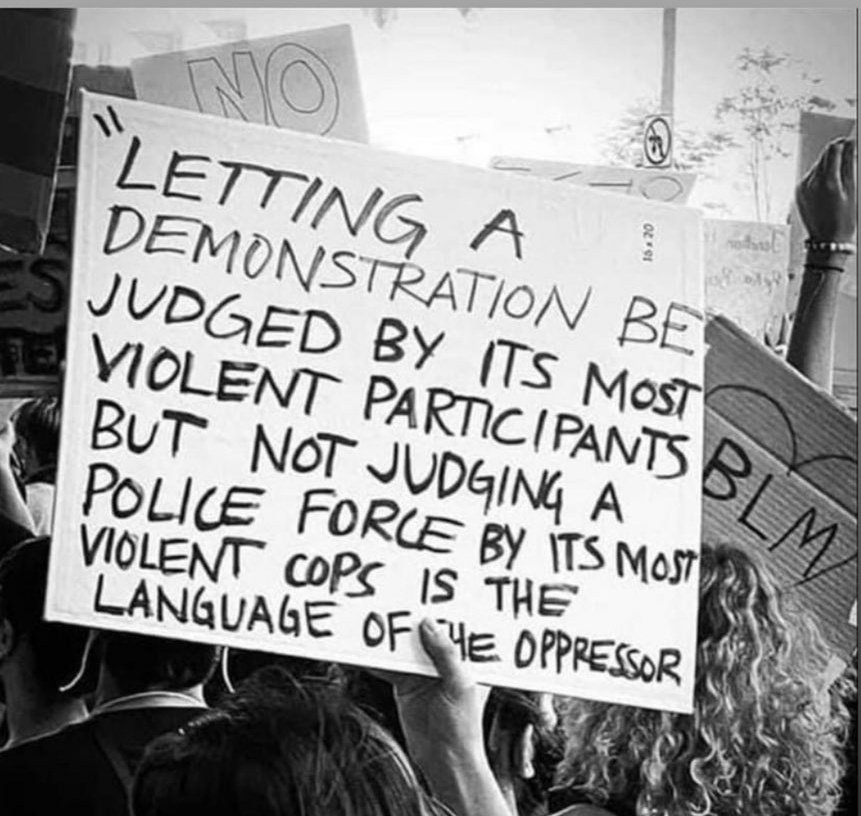 NO
"LETTING A
DEMONSTRATION BE
JUDGED BY ITS MOST
VIOLENT PARTICIPANTS
BUT NOT JUDGING A
POLICE FORCE BY ITS MOST
VIOLENT COPS IS THE
LANGUAGE OF THE OPPRESSOR
16 x 20
BLM